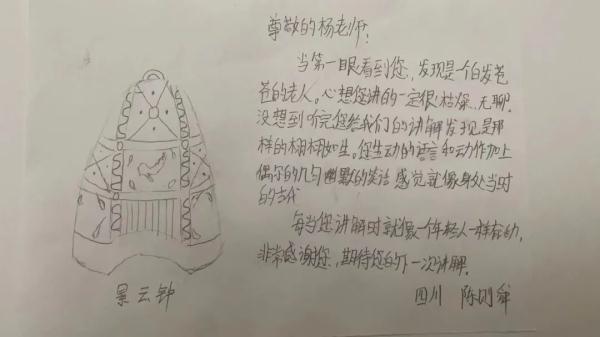 尊敬的杨老师:
当第一眼看到您,发现是个白发苍
苍的老人。心想您讲的一定很枯燥、无聊.
没想到听完您给我们的讲解发现是那
样的栩栩如生。您生动的语言和动作加上
偶尔的几句幽默的笑话感觉就像身处当时
的古代
每当您讲解时就像一个年轻人一样在动,
非常感谢您,期待您的下一次讲解.
四川 陈
景云钟